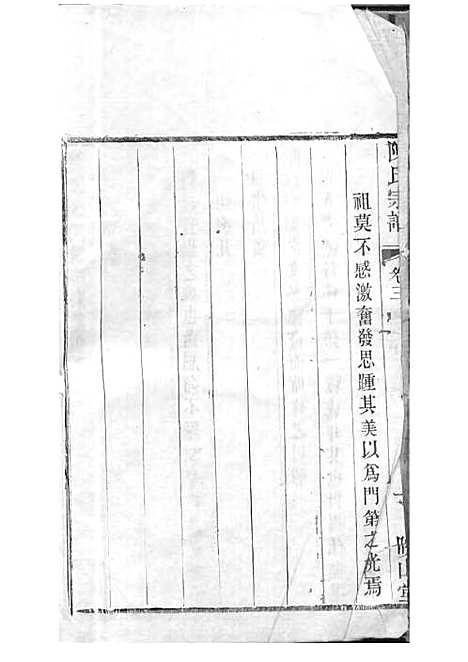 陳氏宗譜
卷三
祖莫不感激奮發思踵其美以爲門第之光焉